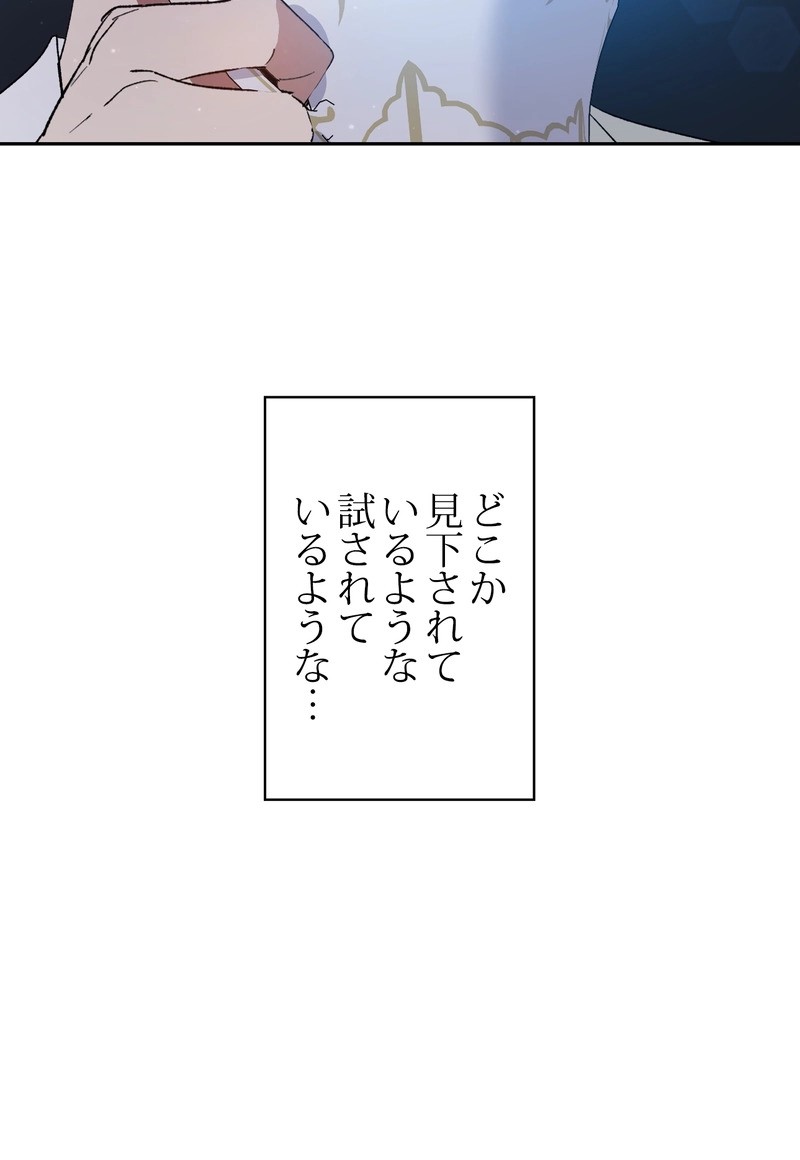 どこか
見下されて
いるような
試されて
いるような…